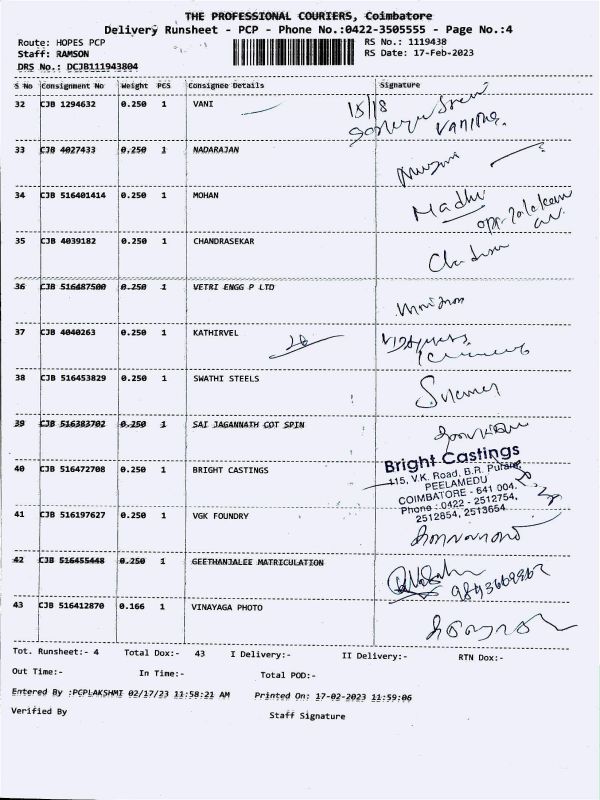 THE PROFESSIONAL COURIERS, Coimbatore
Delivery Runsheet - PCP - Phone No.:0422-3505555 - Page No.:4
Route: HOPES PCP
RS No.: 1119438
Staff: RAMSON
RS Date: 17-Feb-2023
DRS No.: DCJB111943804
S No Consignment No Weight PCS Consignee Details Signature
32 CJB 1294632 0.250 1 VANI
15/18
33 CJB 4027433 0.250 1 NADARAJAN
34 CJB 516401414 0.250 1 MOHAN
Madhu
35 CJB 4039182 0.250 1 CHANDRASEKAR
36 CJB 516487500 0.250 1 VETRI ENGG P LTD
37 CJB 4040263 0.250 1 KATHIRVEL
38 CJB 516453829 0.250 1 SWATHI STEELS
39 CJB 516383702 0.250 1 SAI JAGANNATH COT SPIN
40 CJB 516472708 0.250 1 BRIGHT CASTINGS
Bright Castings
115, V.K. Road, B.R. Puram,
PEELAMEDU
COIMBATORE - 641 004.
Phone : 0422 - 2512754,
2512854, 2513654
41 CJB 516197627 0.250 1 VGK FOUNDRY
42 CJB 516455448 0.250 1 GEETHANJALEE MATRICULATION
43 CJB 516412870 0.166 1 VINAYAGA PHOTO
Tot. Runsheet:- 4 Total Dox:- 43 I Delivery:- II Delivery:- RTN Dox:-
Out Time:- In Time:- Total POD:-
Entered By :PCPLAKSHMI 02/17/23 11:58:21 AM Printed On: 17-02-2023 11:59:06
Verified By Staff Signature